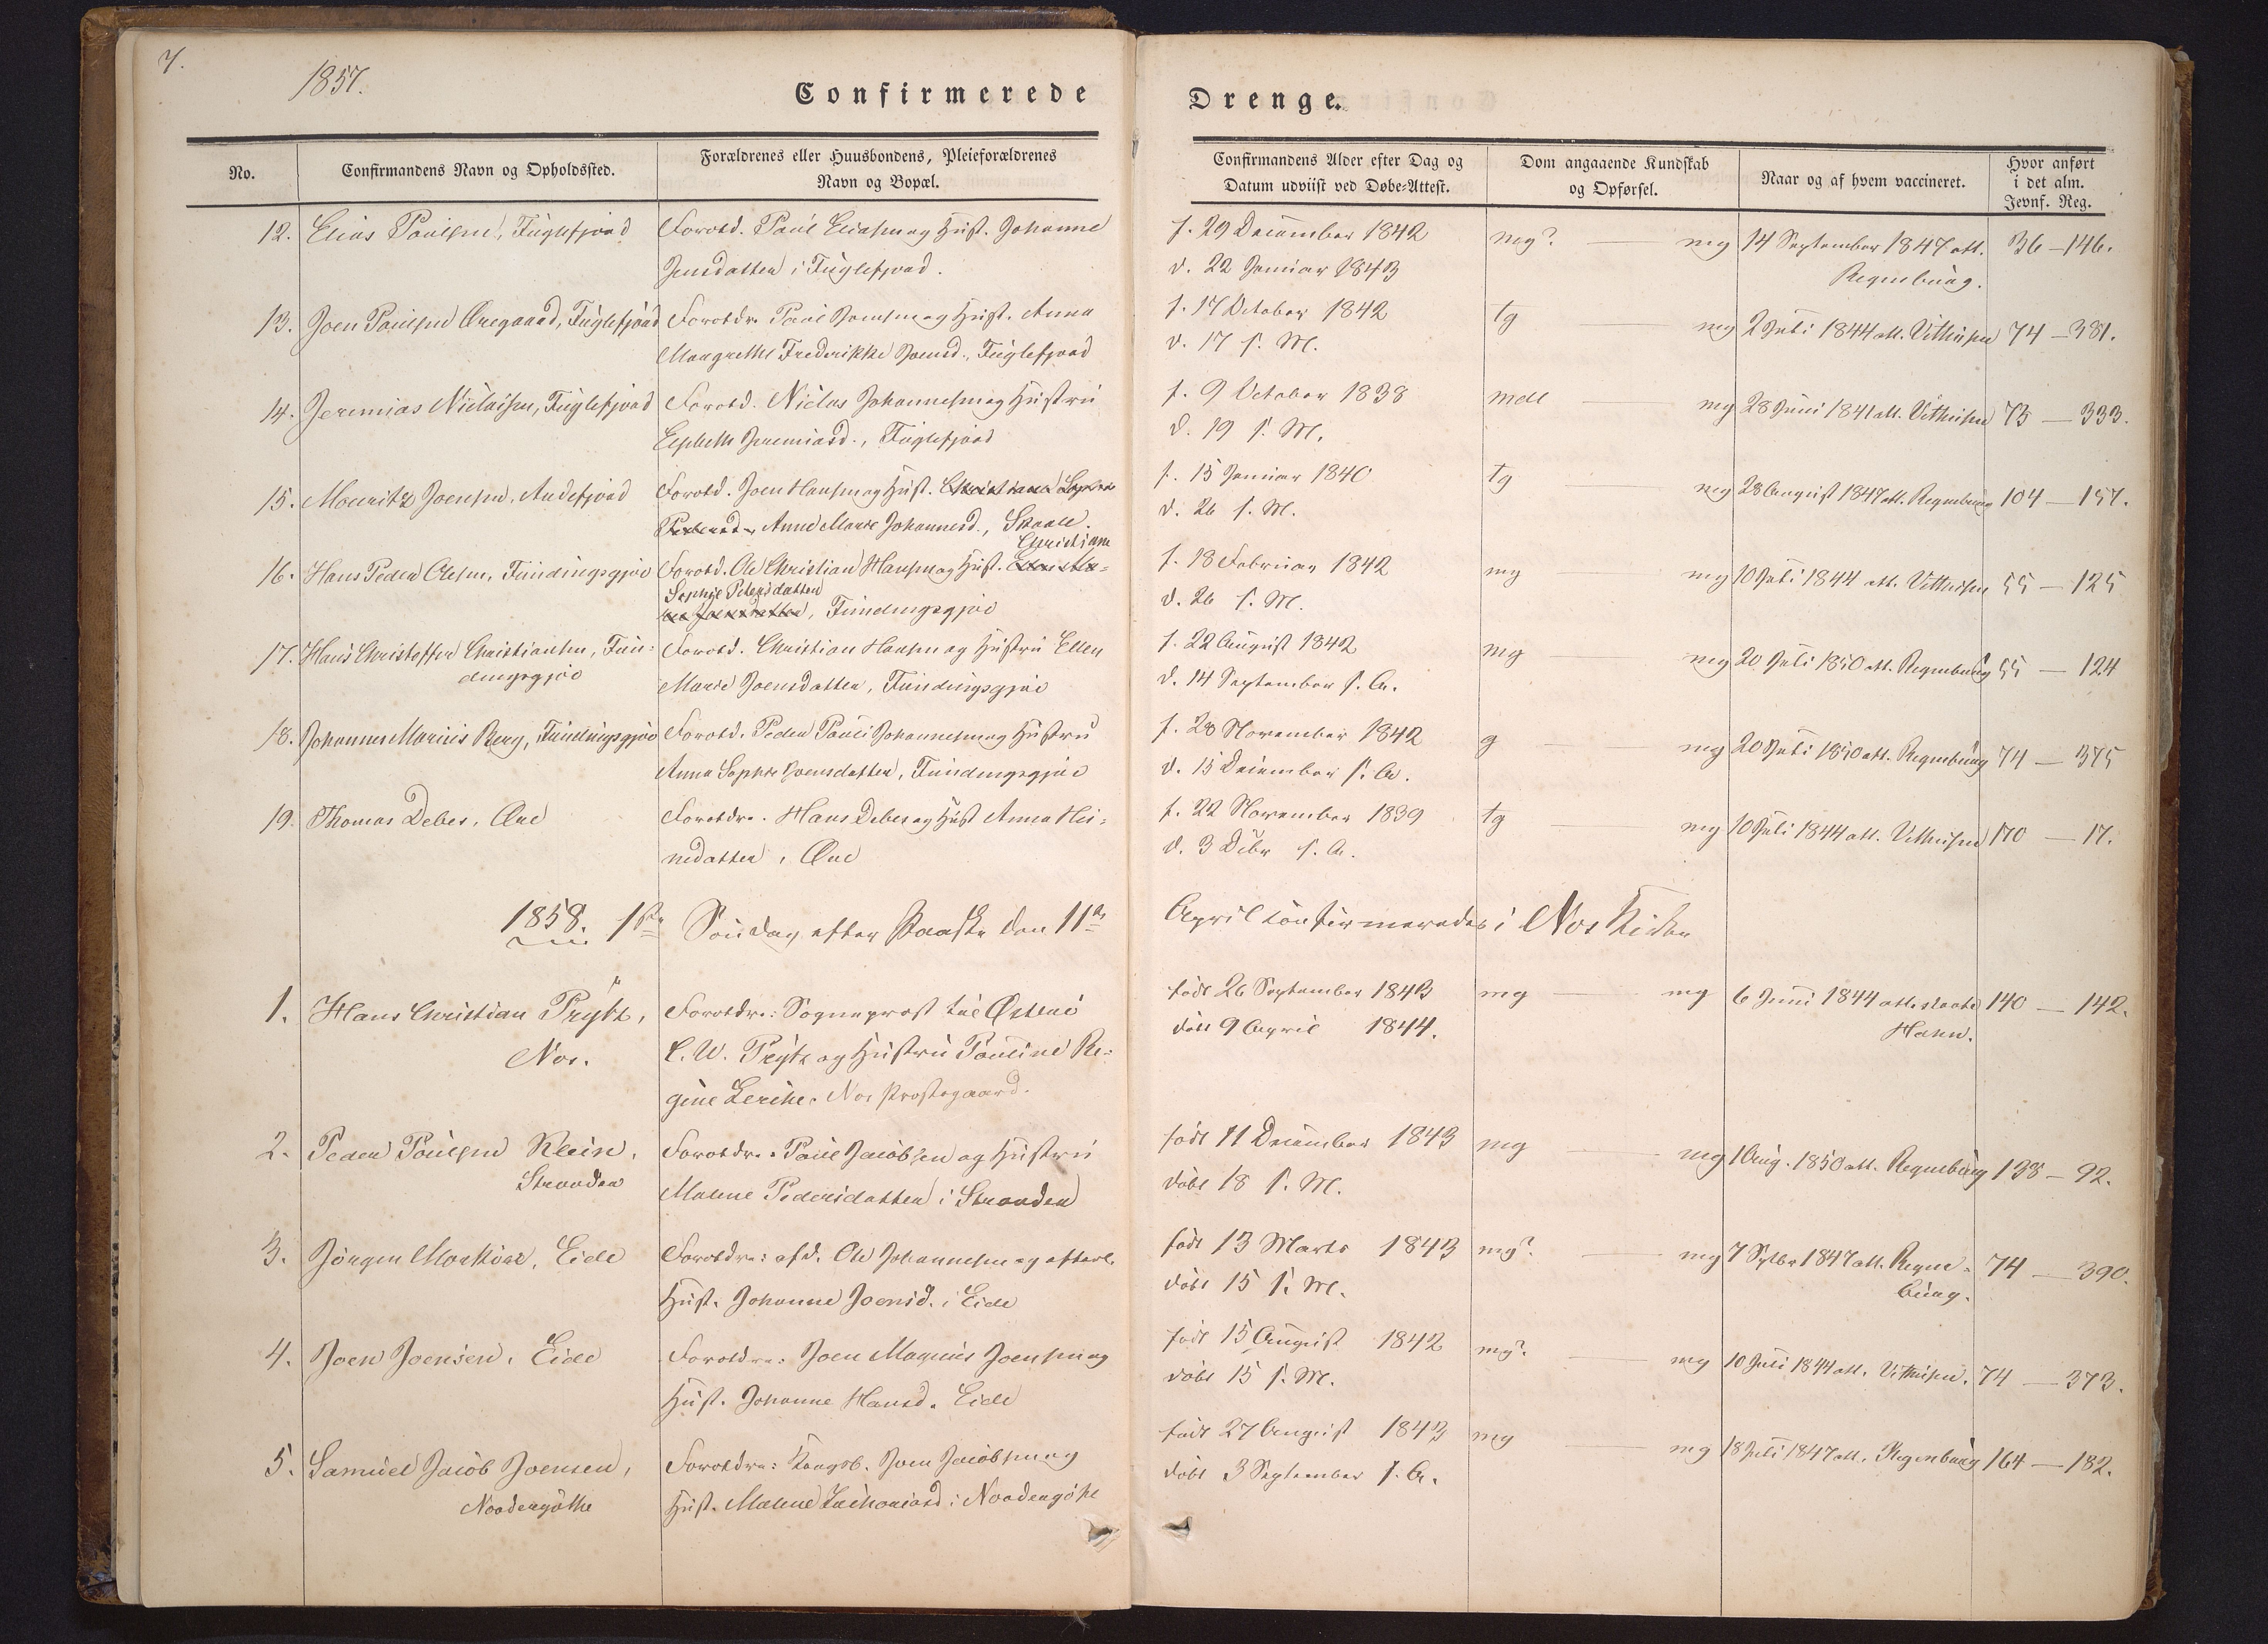 7.
1857.
Confirmerede
Drenge.
No.
Confirmandens Navn og Opholdssted.
Forældrenes eller Huusbondens, Pleieforældrenes
Navn og Bopæl.
Confirmandens Alder efter Dag og
Datum udviist ved Døbe-Attest.
Dom angaaende Kundskab
og Opførsel.
Naar og af hvem vaccineret.
Hvor anført
i det alm.
Jevnf. Reg.
12. Elias Poulsen, Fuglefjord
Foræld. Paul Eliasen og Hust. Johanne
Jensdatter i Fuglefjord.
f. 29 December 1842
d. 22 Januar 1843
mg? — mg
14 September 1847 att.
Regenburg.
36 — 146.
13. Joen Poulsen Øregaard, Fuglefjord
Forældr. Poul Joensen og Hust. Anna
Margrethe Frederikke Joensd., Fuglefjord
f. 17 October 1842
d. 17 s. M.
tg — mg
2 Juli 1844 att. Vithusen
74 — 381.
14. Jeremias Niclaisen, Fuglefjord
Foræld. Niclas Johannesen og Hustru
Elsbeth Jeremiasd., Fuglefjord
f. 9 October 1838
d. 19 s. M.
mdl — mg
28 Juni 1841 att. Vithusen
75 — 333.
15. Mouritz Joensen, Andefjord
Foræld. Joen Hansen og Hust. Christiane Sophie
Anne Marie Johannesd., Skaale.
f. 15 Januar 1840
d. 26 s. M.
tg — mg
28 August 1847 att. Regenburg
104 — 157.
16. Hans Peder Olesen, Fundingsgjov
Christiane
Foræld. Ole Christian Hansen og Hust. Ellen Ma-
Sophie Petersdatter
rie Joensdatter, Fundingsgjov
f. 18 Februar 1842
d. 26 s. M.
mg — mg
10 Juli 1844 att. Vithusen
55 — 125
17. Hans Christoffer Christiansen, Fun-
dingsgjov
Foræld. Christian Hansen og Hustru Ellen
Marie Joensdatter, Fundingsgjov
f. 22 August 1842
d. 14 September s. A.
mg — mg
20 Juli 1850 att. Regenburg
55 — 124
18. Johannes Marius Berg, Fundingsgjov
Foræld. Peder Pauli Johannesen og Hustru
Anna Sophie Joensdatter, Fundingsgjov
f. 28 November 1842
d. 15 December s. A.
g — mg
20 Juli 1850 att. Regenburg
74 — 375
19. Thomas Debes, Øre
Forældre. Hans Debes og Hust Anna
, Øre
f. 22 November 1839
d. 3 Decbr s. A.
tg — mg
10 Juli 1844 att. Vithusen
170 — 17.
1858. 1ste Søndag efter Paaske den 11te
April confirmerede i Nes Kirke
1. Hans Christian Prytz,
Nes.
Forældre: Sogneprost til Østerø
C. W. Prytz og Hustru Pouline Re-
gine Lerche. Nes Prostegaard.
født 26 September 1843
døbt 9 April 1844.
mg — mg
6 Juni 1844 att.
Hahn.
140 — 142.
2. Peder Poulsen Klein,
Strander
Forældre. Poul Jacobsen og Hustru
Malene Pedersdatter i Strander
født 11 December 1843
døbt 18 s. M.
mg — mg
1 Aug. 1850 att. Regenburg
138 — 92.
3. Jörgen Morkøre, Eide
Forældre: afd. Ole Johannesen og efterl.
Hust. Johanne Joensd. i Eide
født 13 Marts 1843
døbt 15 s. M.
mg? — mg
7 Septbr 1847 att. Regen-
burg.
74 — 390.
4. Joen Joensen, Eide
Forældre: Joen Magnus Joensen og
Hust. Johanne Hansd. Eide
født 15 August 1842
døbt 15 s. M.
mg? — mg
10 Juli 1844 att. Vithusen.
74 — 373.
5. Samuel Jacob Joensen,
Nordergøthe
Forældre: Kongsb. Joen Jacobsen og
Hust. Malene Zachariasd i Nordergøthe
født 27 August 1843
døbt 3 September s. A.
mg — mg
18 Juli 1847 att. Regenburg
164 — 182.